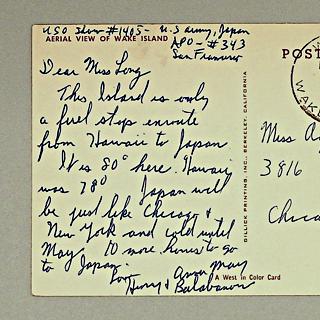 USO Show #1405- U.S Army, Japan
AERIAL VIEW OF WAKE ISLAND
APO- #343
San Francisco
Dear Miss Long
This Island is only
a fuel stop enroute
from Hawaii to Japan
It is 80° here. Hawaii
was 78° Japan will
be just like Chicago &
New York and cold until
May. 10 more hours to go
to Japan.
Love
Anna May
Henry & Balabanow
A West in Color Card
DILLICK PRINTING, INC., BERKELEY, CALIFORNIA
POST
WAK
Miss A
3816
Chica